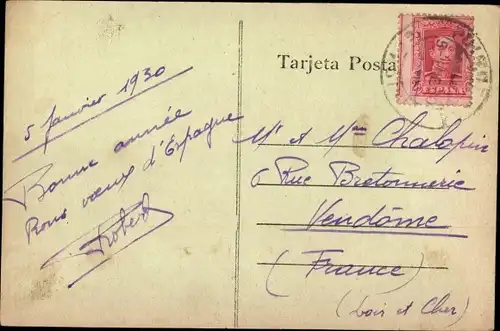 5 Janvier 1930
Bonne année
Bons vœux d'Espagne
Robert
Tarjeta Posta
Mr et Mme Chalopin
6 Rue Bretonnerie
Vendôme
(France)
(Loir et Cher)
ESPAÑA